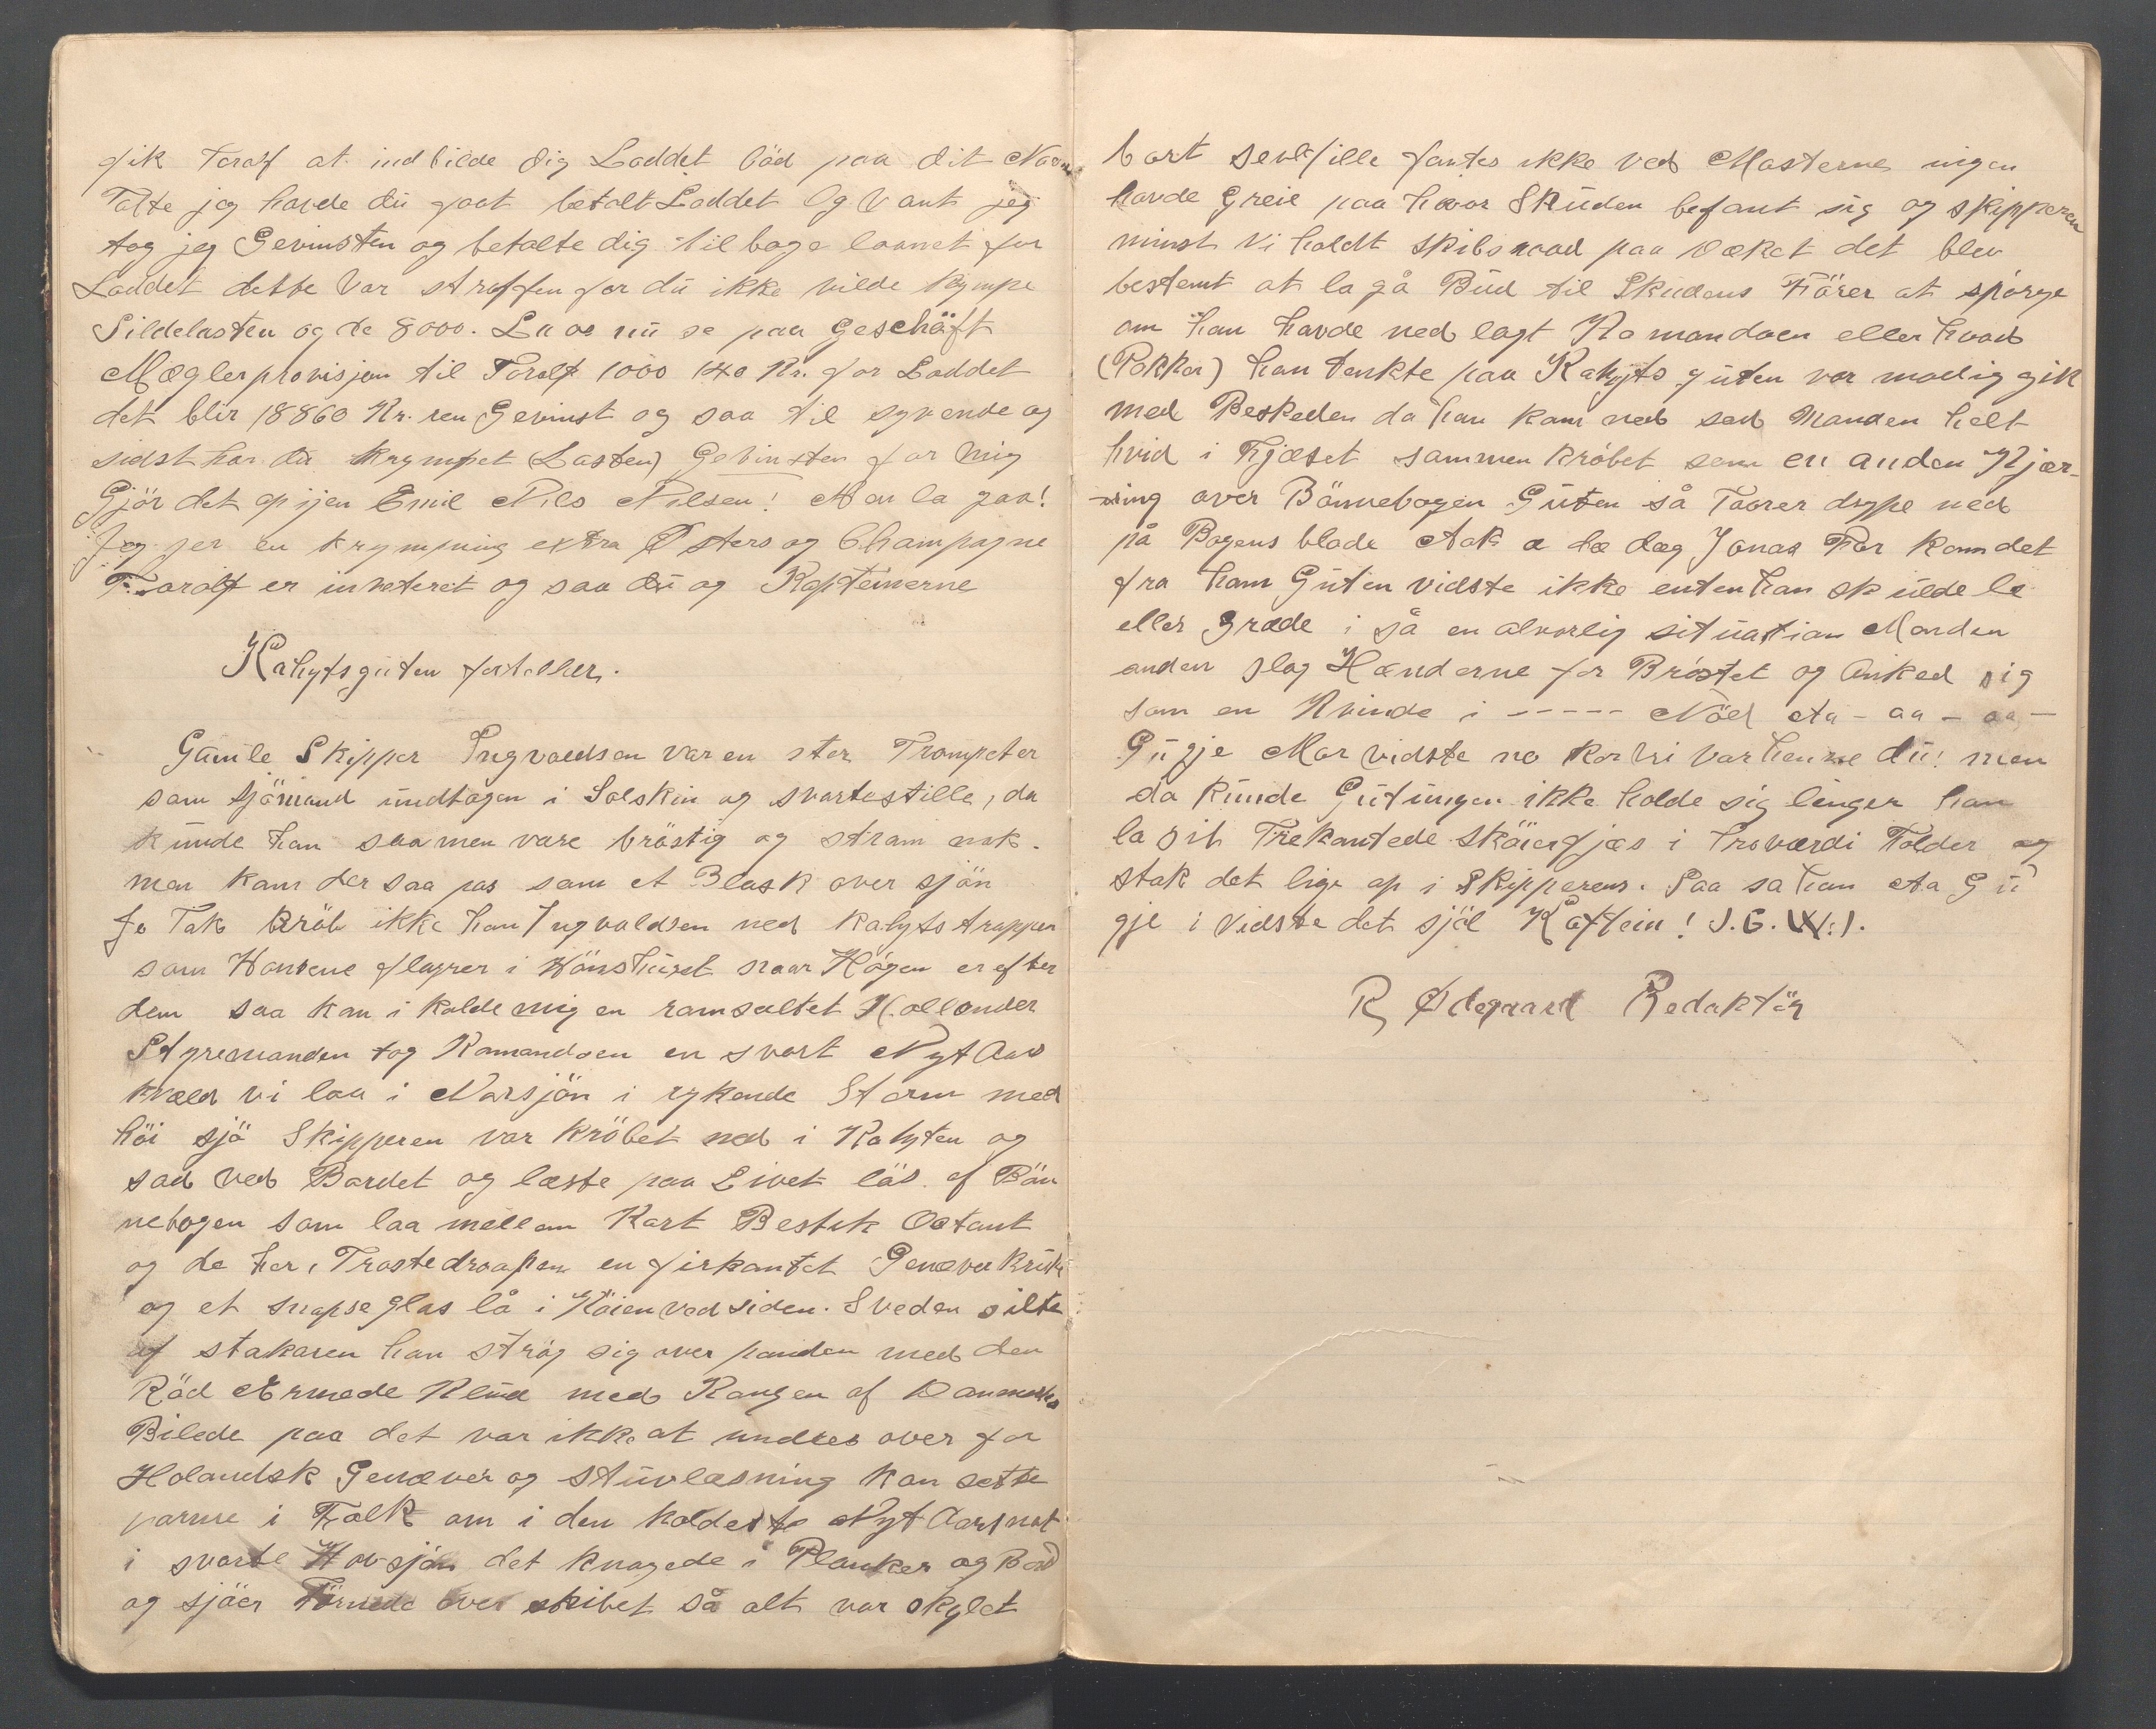 fik Toralf at indbilde dig Loddet löd paa dit Navn
Talte jeg havde du gaat betalt Loddet Og Vant jeg
tog jeg Gevinsten og betalte dig tilbage laanet for
Loddet dette Var straffen for du ikke vilde krympe
Sildelasten og de 8000. La os nu se paa Geschäft
Mæglerprovisjon til Toralf 1000 140 Kr. for Loddet
det blir 18860 Kr. ren Gevinst og saa til syvende og
sidst har du krympet (Lasten) Gevinsten for mig
Gjör det op ijen Emil Nils Nilsen! Nor la gaa!
Jeg jer en krympning extra Østers og Champagne
Toralf er inviteret og saa du og Kapteinerne
Kahytsguten forteller.
Gamle Skipper Ingvaldsen var en stor Trompeter
som sjömand undtagen i Solskin og svartestille, da
kunde han saamen være bröstig og stram nok.
men kom der saa pas som et Blask over sjön
Jo Tak kröb ikke han Ingvaldsen ned Kahyts trappen
som Hönsene flagrer i Hönshuset naar Högen er efter
dem saa kan i kalde mig en ramsaltet Hollender
Styremanden tog Komandoen en svart Nyt Aars
kvæld vi laa i Norsjön i rykende Storm med
höi sjö Skipperen var kröbet ned i Kahyten og
sad ved Bordet og læste paa Livet lös af Bön
nebogen som laa mellem Kart Bestik Octant
og de her Trøstedraaper en firkantet Genever Krukke
og et snapseglas lå i Köien ved siden. Sveden silte
af stakaren han strög sig over panden med den
Röd Ærmede Klud med Kongen af Danmarks
Bilede paa det var ikke at undres over for
Holandsk Genæver og stuvlæsning kan sette
varme i Folk om i den koldeste Nyt Aarsnat
i svarte Hovsjön det knagede i Planker og Bord
og sjöer Törnede over skibet så alt var skylet
bort Seilfille fantes ikke ved Masterne ingen
havde Greie paa hvor Skuden befant sig og skipperen
minst Vi holdt Skibsraad paa Dækat det blev
bestemt at la gå Bud til Skudens Förer at spörge
om han havde ned lagt Komandoen eller hvad
(Pokker) han tenkte paa Kahyts guten var modig gik
med Beskeden da han kom ned sad Manden helt
hvid i Fjæset sammen kröbet som en anden Kjær-
-ring over Bönnebogen Guten så Taarer dryppe ned
på Bogens blade Aak a dæ dæg Jonas Far kom det
fra ham Guten vidste ikke enten han skulde le
eller græde i så en alvorlig situatian Manden
anden slog Hænderne for Bröstet og Anked sig
som en Kvinde i ----- Nöd Aa - aa - aa -
Gugje Mor vidste no kor vi var henne du! men
da kunde Gutungen ikke holde sig lenger han
la sit Trekantede Sköierfjæs i troværdi Folder og
stak det lige op i Skipperens. Saa sa han Aa Gu
gje i Vidste det sjöl Kaftein! J. G. W:J.
R Ødegaard Redaktör